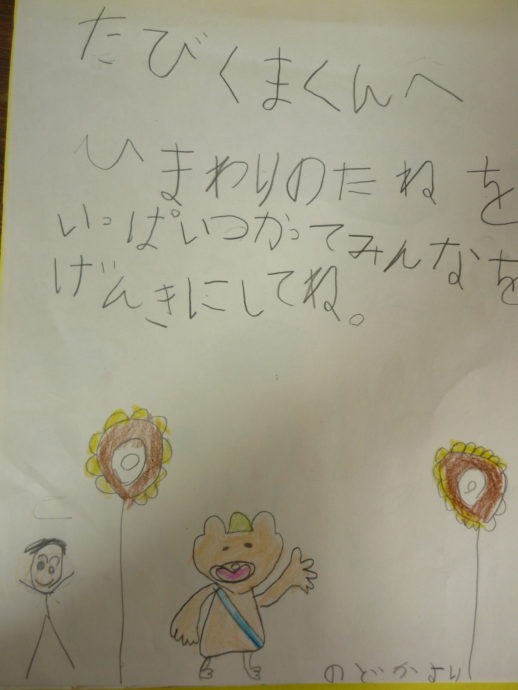 たびくまくんへ
ひまわりのたねを
いっぱいつかってみんなを
げんきにしてね。
のどかより